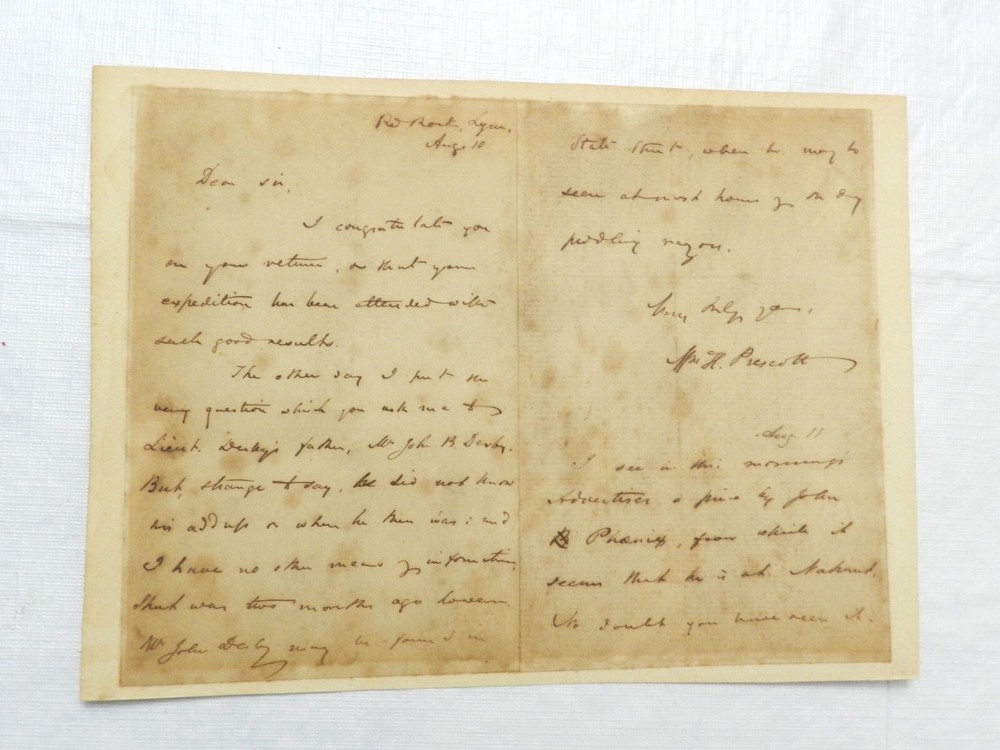 Red Rock, Lynn,
Aug. 10
Dear sir,
I congratulate you
on your return, & that your
expedition has been attended with
such good results.
The other day I put the
very question which you ask me to
Lieut. Derby's father, Mr John B. Derby.
But, strange to say, he did not know
his address or where he then was: and
I have no other means of information.
That was two months ago however.
Mr John Derby may be found in
State Street, where he may be
seen at most hours of the day
peddling razors.
Very truly yours,
Wm H. Prescott
Aug 11
I see in this morning's
Advertiser a piece by John
Phoenix, from which it
seems that he is at Nahant.
No doubt you have seen it.